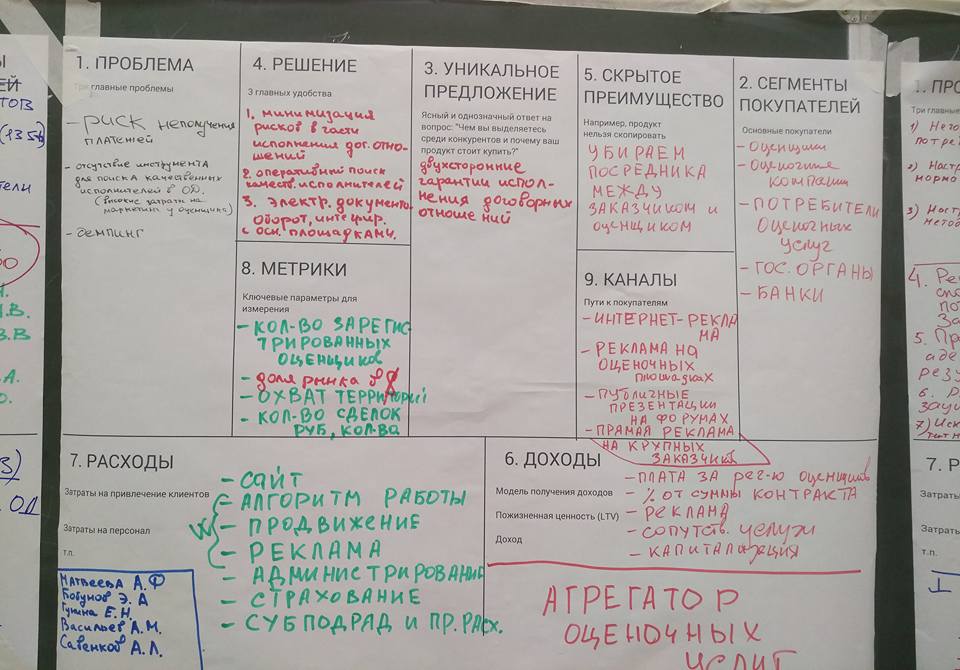 1. ПРОБЛЕМА
Три главные проблемы
- РИСК НЕПОЛУЧЕНИЯ
ПЛАТЕЖЕЙ
- ОТСУТСТВИЕ ИНСТРУМЕНТА
ДЛЯ ПОИСКА КАЧЕСТВЕННЫХ
ИСПОЛНИТЕЛЕЙ В ОД.
(ВЫСОКИЕ ЗАТРАТЫ НА
МАРКЕТИНГ У ОЦЕНЩИКА)
- ДЕМПИНГ
4. РЕШЕНИЕ
3 главных удобства
1. МИНИМИЗАЦИЯ
РИСКОВ В ЧАСТИ
ИСПОЛНЕНИЯ ДОГ. ОТНО-
ШЕНИЙ
2. ОПЕРАТИВНЫЙ ПОИСК
КАЧЕСТВ. ИСПОЛНИТЕЛЕЙ
3. ЭЛЕКТР. ДОКУМЕНТО
ОБОРОТ, ИНТЕГРИР.
С ОСН. ПЛОЩАДКАМИ.
8. МЕТРИКИ
Ключевые параметры для
измерения
- КОЛ-ВО ЗАРЕГИС
ТРИРОВАННЫХ
ОЦЕНЩИКОВ
- ДОЛЯ РЫНКА В
- ОХВАТ ТЕРРИТОРИЙ
- КОЛ-ВО СДЕЛОК
РУБ, КОЛ-ВО
3. УНИКАЛЬНОЕ
ПРЕДЛОЖЕНИЕ
Ясный и однозначный ответ на
вопрос: "Чем вы выделяетесь
среди конкурентов и почему ваш
продукт стоит купить?"
ДВУХСТОРОННИЕ
ГАРАНТИИ ИСПОЛ-
НЕНИЯ ДОГОВОРНЫХ
ОТНОШЕНИЙ
5. СКРЫТОЕ
ПРЕИМУЩЕСТВО
Например, продукт
нельзя скопировать
УБИРАЕМ
ПОСРЕДНИКА
МЕЖДУ
ЗАКАЗЧИКОМ И
ОЦЕНЩИКОМ
9. КАНАЛЫ
Пути к покупателям
- ИНТЕРНЕТ-РЕКЛА
МА
- РЕКЛАМА НА
ОЦЕНОЧНЫХ
ПЛОЩАДКАХ
- ПУБЛИЧНЫЕ
ПРЕЗЕНТАЦИИ
НА ФОРУМАХ
- ПРЯМАЯ РЕКЛАМА
НА КРУПНЫХ
ЗАКАЗЧИКОВ
2. СЕГМЕНТЫ
ПОКУПАТЕЛЕЙ
Основные покупатели
- ОЦЕНЩИКИ
- ОЦЕНОЧНЫЕ
КОМПАНИИ
- ПОТРЕБИТЕЛИ
ОЦЕНОЧНЫХ
УСЛУГ
- ГОС. ОРГАНЫ
- БАНКИ
7. РАСХОДЫ
Затраты на привлечение клиентов
Затраты на персонал
т.п.
- САЙТ
- АЛГОРИТМ РАБОТЫ
- ПРОДВИЖЕНИЕ
- РЕКЛАМА
- АДМИНИСТРИРОВАНИЕ
- СТРАХОВАНИЕ
- СУБПОДРЯД И ПР. РАСХ.
МАТВЕЕВА А.Ф
БОБУНОВ Э.А
ГУНИНА Е.Н.
ВАСИЛЬЕВ А.М.
САВЕНКОВ А.Л.
6. ДОХОДЫ
Модель получения доходов
Пожизненная ценность (LTV)
Доход
- ПЛАТА ЗА РЕГ-Ю ОЦЕНЩИКОВ
- % ОТ СУММЫ КОНТРАКТА
- РЕКЛАМА
- СОПУТСТВ. УСЛУГИ
- КАПИТАЛИЗАЦИЯ
АГРЕГАТОР
ОЦЕНОЧНЫХ
УСЛУГ
Три главные
5. ПР
6. Р
7. Р
Затраты
Затраты
т.п.